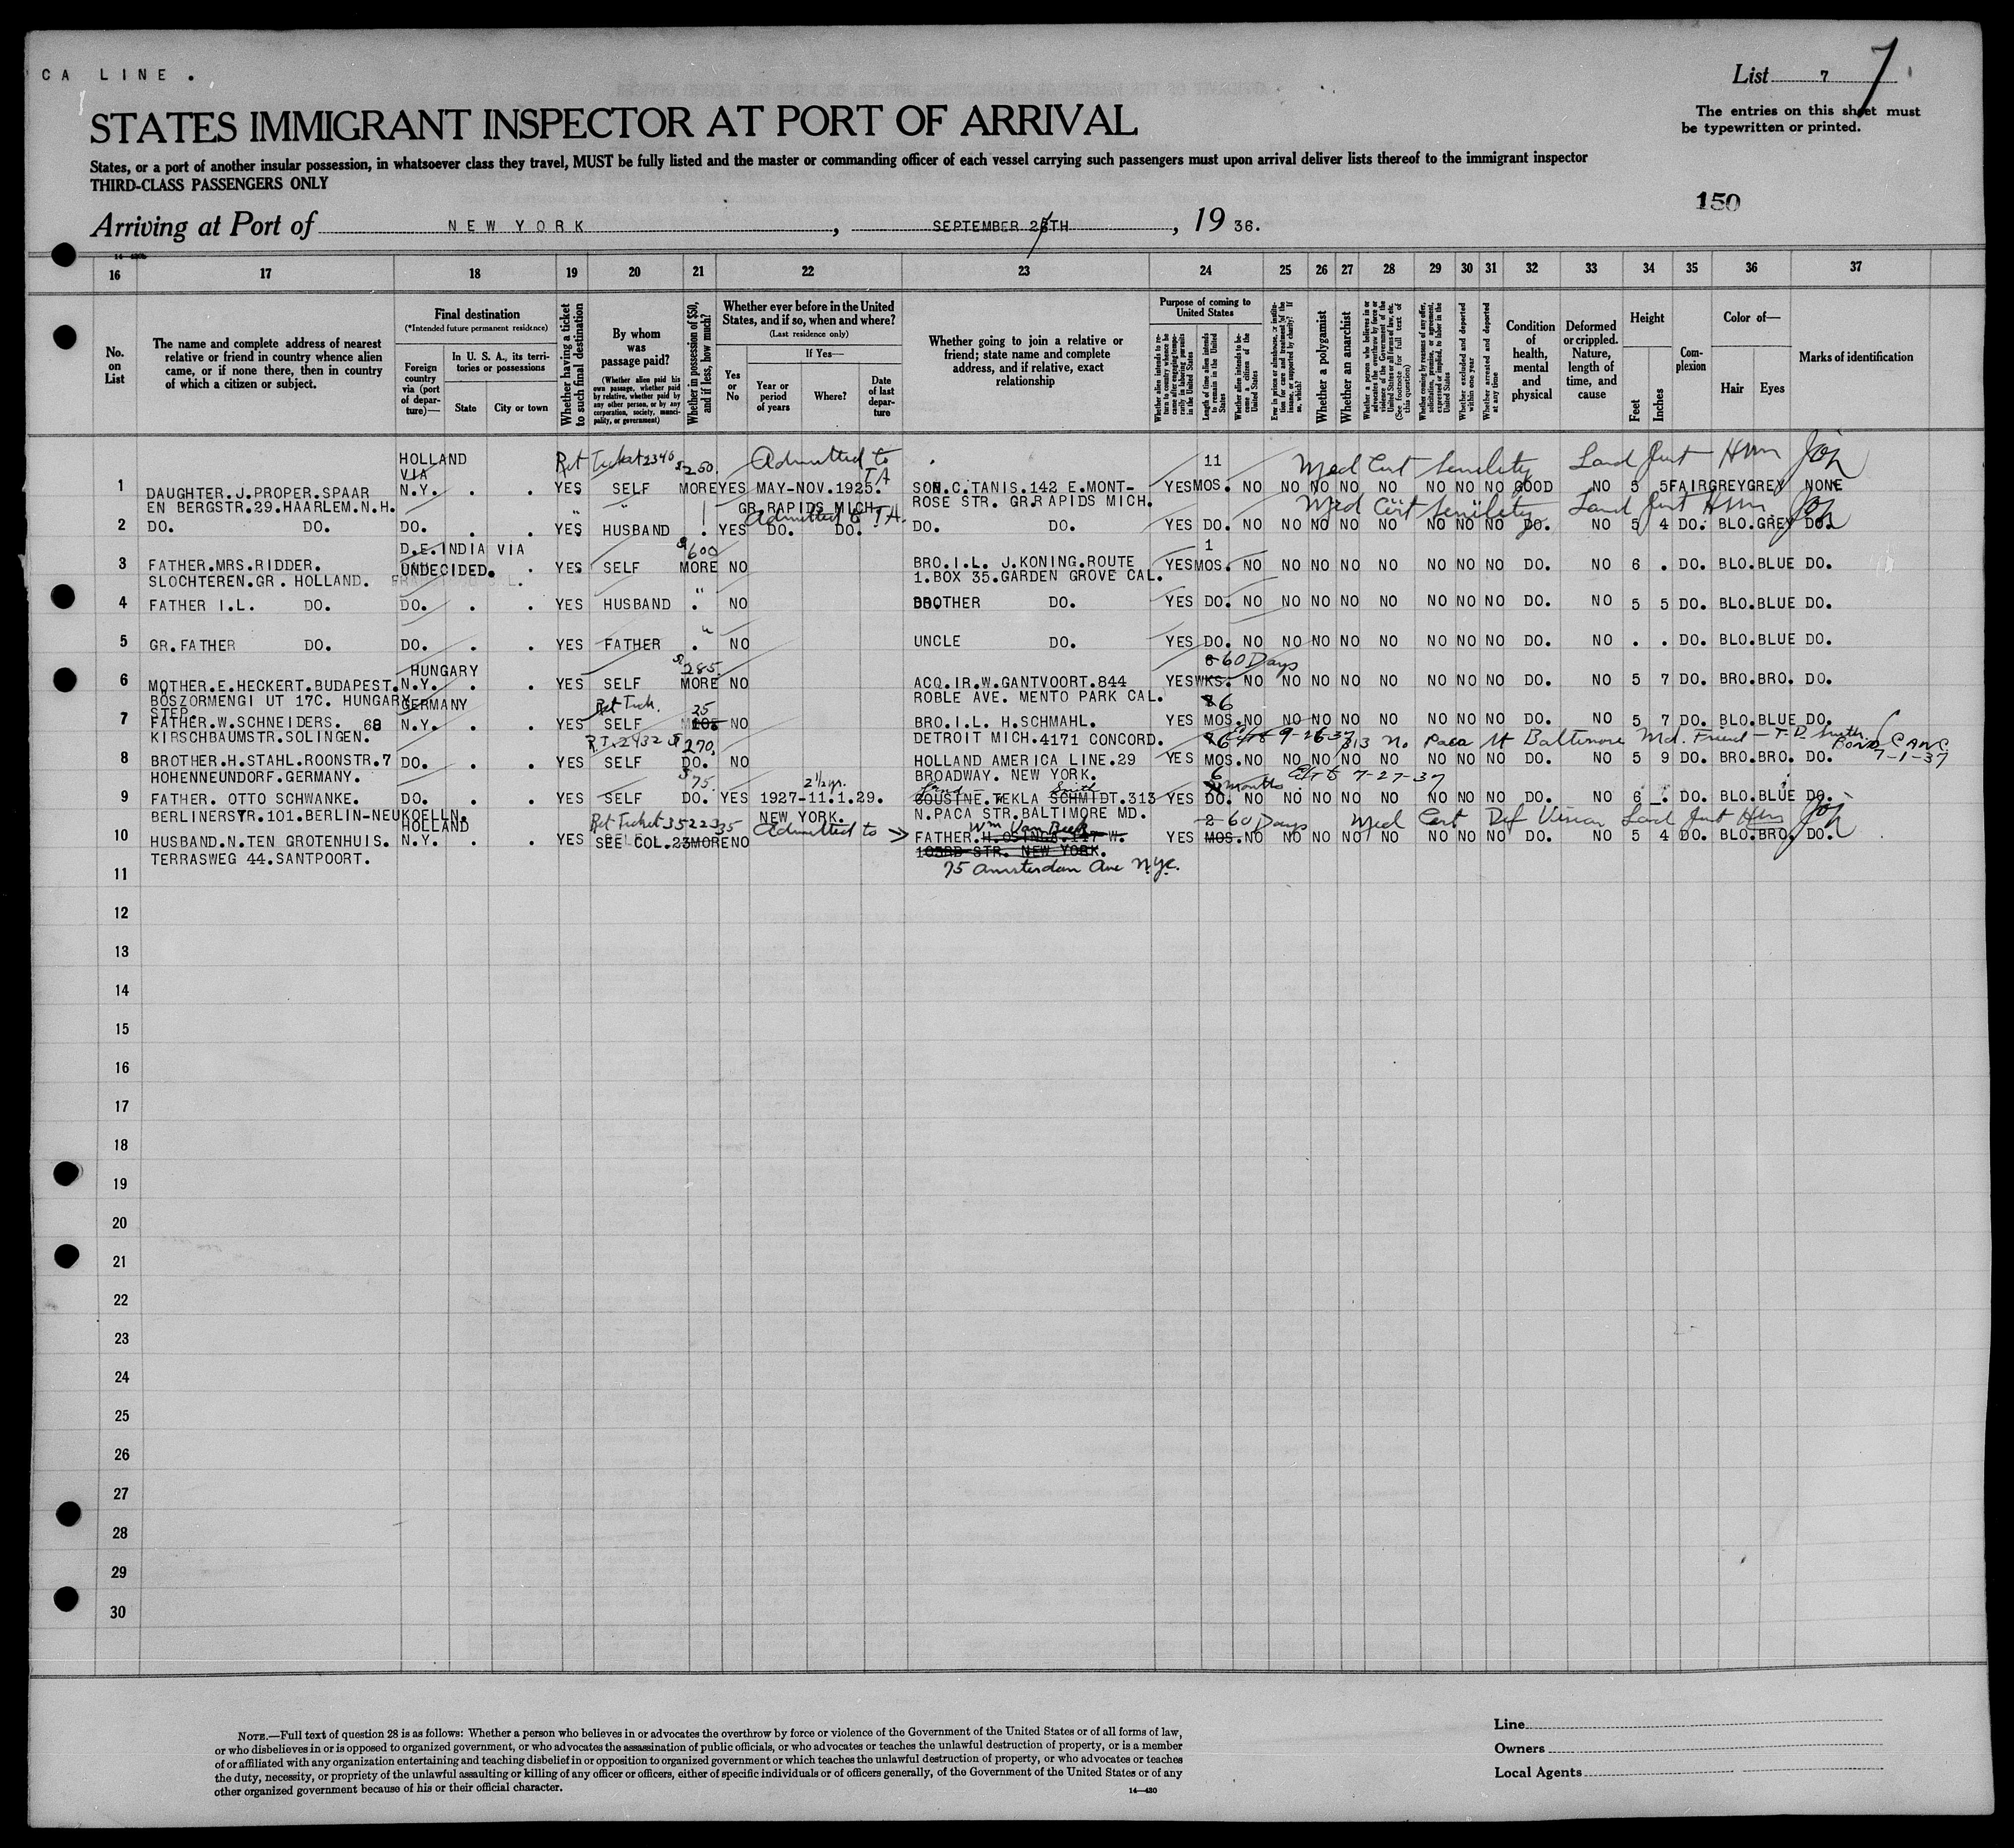 CA LINE.
List 7 7
The entries on this sheet must
be typewritten or printed.
STATES IMMIGRANT INSPECTOR AT PORT OF ARRIVAL
States, or a port of another insular possession, in whatsoever class they travel, MUST be fully listed and the master or commanding officer of each vessel carrying such passengers must upon arrival deliver lists thereof to the immigrant inspector
THIRD-CLASS PASSENGERS ONLY
150
Arriving at Port of NEW YORK, SEPTEMBER TH, 1936.
16 17 18 19 20 21 22 23 24 25 26 27 28 29 30 31 32 33 34 35 36 37
No. on List
The name and complete address of nearest relative or friend in country whence alien came, or if none there, then in country of which a citizen or subject.
Final destination
(*Intended future permanent residence)
Foreign country via (port of departure)—
In U. S. A., its territories or possessions
State
City or town
Whether having a ticket to such final destination
By whom was passage paid?
(Whether alien paid his own passage, whether paid by relative, whether paid by any other person, or by any corporation, society, municipality, or government)
Whether in possession of $50, and if less, how much?
Whether ever before in the United States, and if so, when and where?
(Last residence only)
Yes or No
If Yes—
Year or period of years
Where?
Date of last departure
Whether going to join a relative or friend; state name and complete address, and if relative, exact relationship
Purpose of coming to United States
Whether alien intends to return to country whence he came after engaging temporarily in laboring pursuits in the United States
Length of time alien intends to remain in the United States
Whether alien intends to become a citizen of the United States
Ever in prison or almshouse, or institution for care and treatment of the insane, or supported by charity? If so, which?
Whether a polygamist
Whether an anarchist
Whether a person who believes in or advocates the overthrow by force or violence of the Government of the United States or all forms of law, etc. (See footnote for full text of this question)
Whether coming by reason of any offer, solicitation, promise, or agreement, expressed or implied, to labor in the United States
Whether excluded and deported within one year
Whether arrested and deported at any time
Condition of health, mental and physical
Deformed or crippled. Nature, length of time, and cause
Height
Feet
Inches
Complexion
Color of—
Hair
Eyes
Marks of identification
HOLLAND Ret Ticket 2340 $250. Admitted to TA 11 Med Cert Senility Land Just Hnn
VIA
1 DAUGHTER.J.PROPER.SPAAR N.Y. . . YES SELF MORE YES MAY-NOV.1925. SON.C.TANIS.142 E.MONT- YES MOS. NO NO NO NO NO NO NO NO GOOD NO 5 5 FAIR GREY GREY NONE
EN BERGSTR.29.HAARLEM.N.H. GR.RAPIDS MICH. ROSE STR. GR.RAPIDS MICH.
Admitted to TA. Med Cert Senility Land Just
2 DO. DO. DO. . . YES HUSBAND . YES DO. DO. DO. DO. YES DO. NO NO NO NO NO NO NO NO DO. NO 5 4 DO. BLO. GREY DO.
D.E.INDIA VIA $600 1
3 FATHER.MRS.RIDDER. UNDECIDED. . YES SELF MORE NO BRO.I.L. J.KONING.ROUTE YES MOS. NO NO NO NO NO NO NO NO DO. NO 6 . DO. BLO. BLUE DO.
SLOCHTEREN.GR. HOLLAND. 1.BOX 35.GARDEN GROVE CAL.
4 FATHER I.L. DO. DO. . . YES HUSBAND . NO BROTHER DO. YES DO. NO NO NO NO NO NO NO NO DO. NO 5 5 DO. BLO. BLUE DO.
5 GR.FATHER DO. DO. . . YES FATHER . NO UNCLE DO. YES DO. NO NO NO NO NO NO NO NO DO. NO . . DO. BLO. BLUE DO.
HUNGARY $285. 60 Days
6 MOTHER.E.HECKERT.BUDAPEST. N.Y. . . YES SELF MORE NO ACQ.IR.W.GANTVOORT.844 YES WKS. NO NO NO NO NO NO NO NO DO. NO 5 7 DO. BRO. BRO. DO.
BÖSZORMENGI UT 17C. HUNGARY ROBLE AVE. MENTO PARK CAL.
STEP. GERMANY Ret Tick. 25 6
7 FATHER.W.SCHNEIDERS. 68 N.Y. . . YES SELF NO BRO.I.L. H.SCHMAHL. YES MOS. NO NO NO NO NO NO NO NO DO. NO 5 7 DO. BLO. BLUE DO.
KIRSCHBAUMSTR.SOLINGEN. DETROIT MICH.4171 CONCORD.
R.T. 2432 $270. 6 9-26-37 313 N. Paca St Baltimore Md. Friend — T.D. Smith. Bond CANC 7-1-37
8 BROTHER.H.STAHL.ROONSTR.7 DO. . . YES SELF DO. NO HOLLAND AMERICA LINE.29 YES MOS. NO NO NO NO NO NO NO NO DO. NO 5 9 DO. BRO. BRO. DO.
HOHENNEUNDORF.GERMANY. BROADWAY. NEW YORK.
$75. 2½ yr. Smith 6 months 7-27-37
9 FATHER. OTTO SCHWANKE. DO. . . YES SELF DO. YES 1927-11.1.29. COUSINE.TEKLA SCHMIDT.313 YES DO. NO NO NO NO NO NO NO NO DO. NO 6 . DO. BLO. BLUE DO.
BERLINERSTR.101.BERLIN-NEUKOELLN. NEW YORK. N.PACA STR.BALTIMORE MD.
HOLLAND Ret Ticket 352235 Admitted to → Wm Van Beek 2 60 Days Med Cert Def Vision Land Just
10 HUSBAND.N.TEN GROTENHUIS. N.Y. . . YES SEE COL.23 MORE NO FATHER. 147 W. YES MOS. NO NO NO NO NO NO NO NO DO. NO 5 4 DO. BLO. BRO. DO.
TERRASWEG 44.SANTPOORT. 103RD STR. NEW YORK.
75 Amsterdam Ave N.Y.C.
11
12
13
14
15
16
17
18
19
20
21
22
23
24
25
26
27
28
29
30
NOTE.—Full text of question 28 is as follows: Whether a person who believes in or advocates the overthrow by force or violence of the Government of the United States or of all forms of law,
or who disbelieves in or is opposed to organized government, or who advocates the assassination of public officials, or who advocates or teaches the unlawful destruction of property, or is a member
of or affiliated with any organization entertaining and teaching disbelief in or opposition to organized government or which teaches the unlawful destruction of property, or who advocates or teaches
the duty, necessity, or propriety of the unlawful assaulting or killing of any officer or officers, either of specific individuals or of officers generally, of the Government of the United States or of any
other organized government because of his or their official character.
14—430
Line
Owners
Local Agents